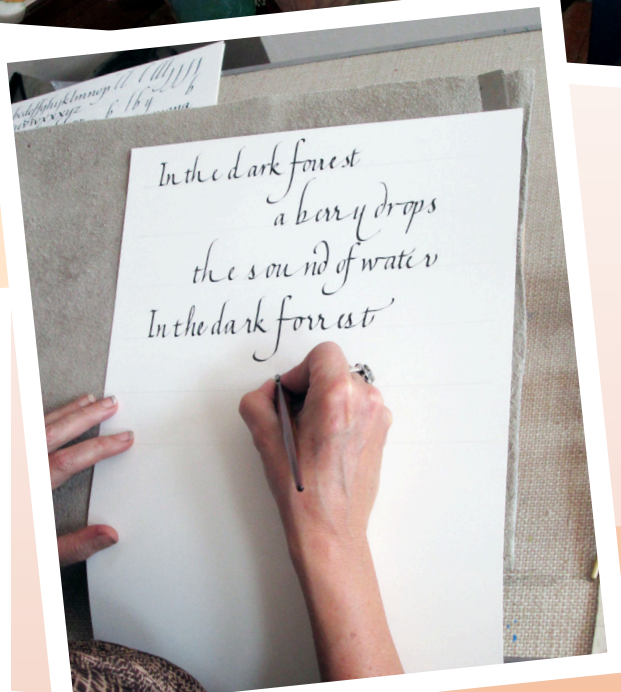 In the dark forrest
a berry drops
the sound of water
In the dark forrest